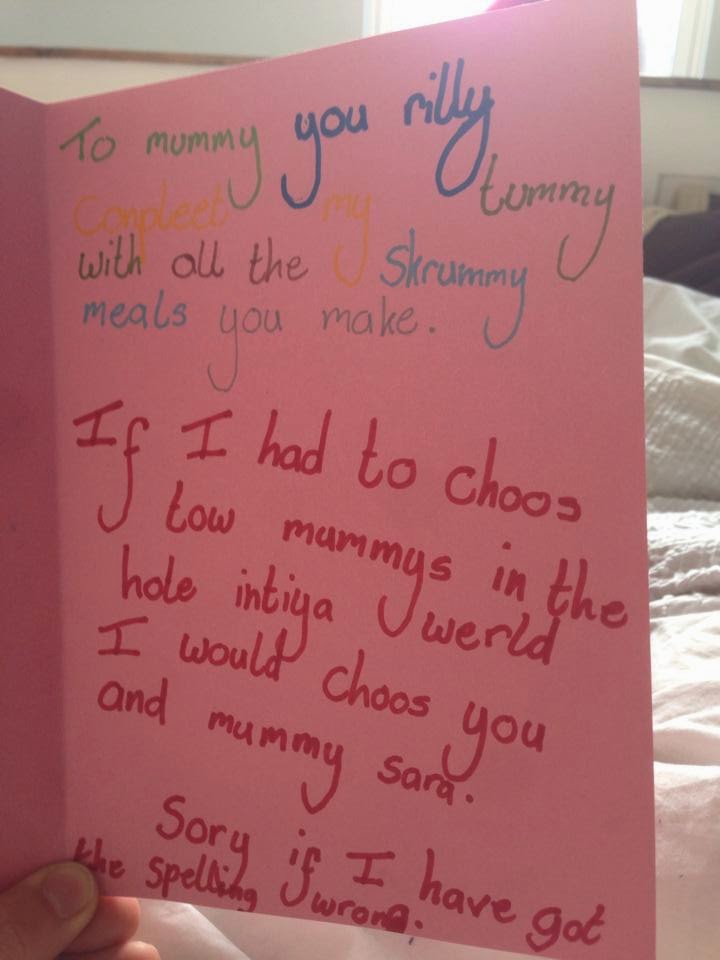 To mummy you rilly
Conpleet my tummy
with all the Skrummy
meals you make.
If I had to choos
tow mummys in the
hole intiya werld
I would choos you
and mummy sara.
Sory if I have got
the spelling wrong.